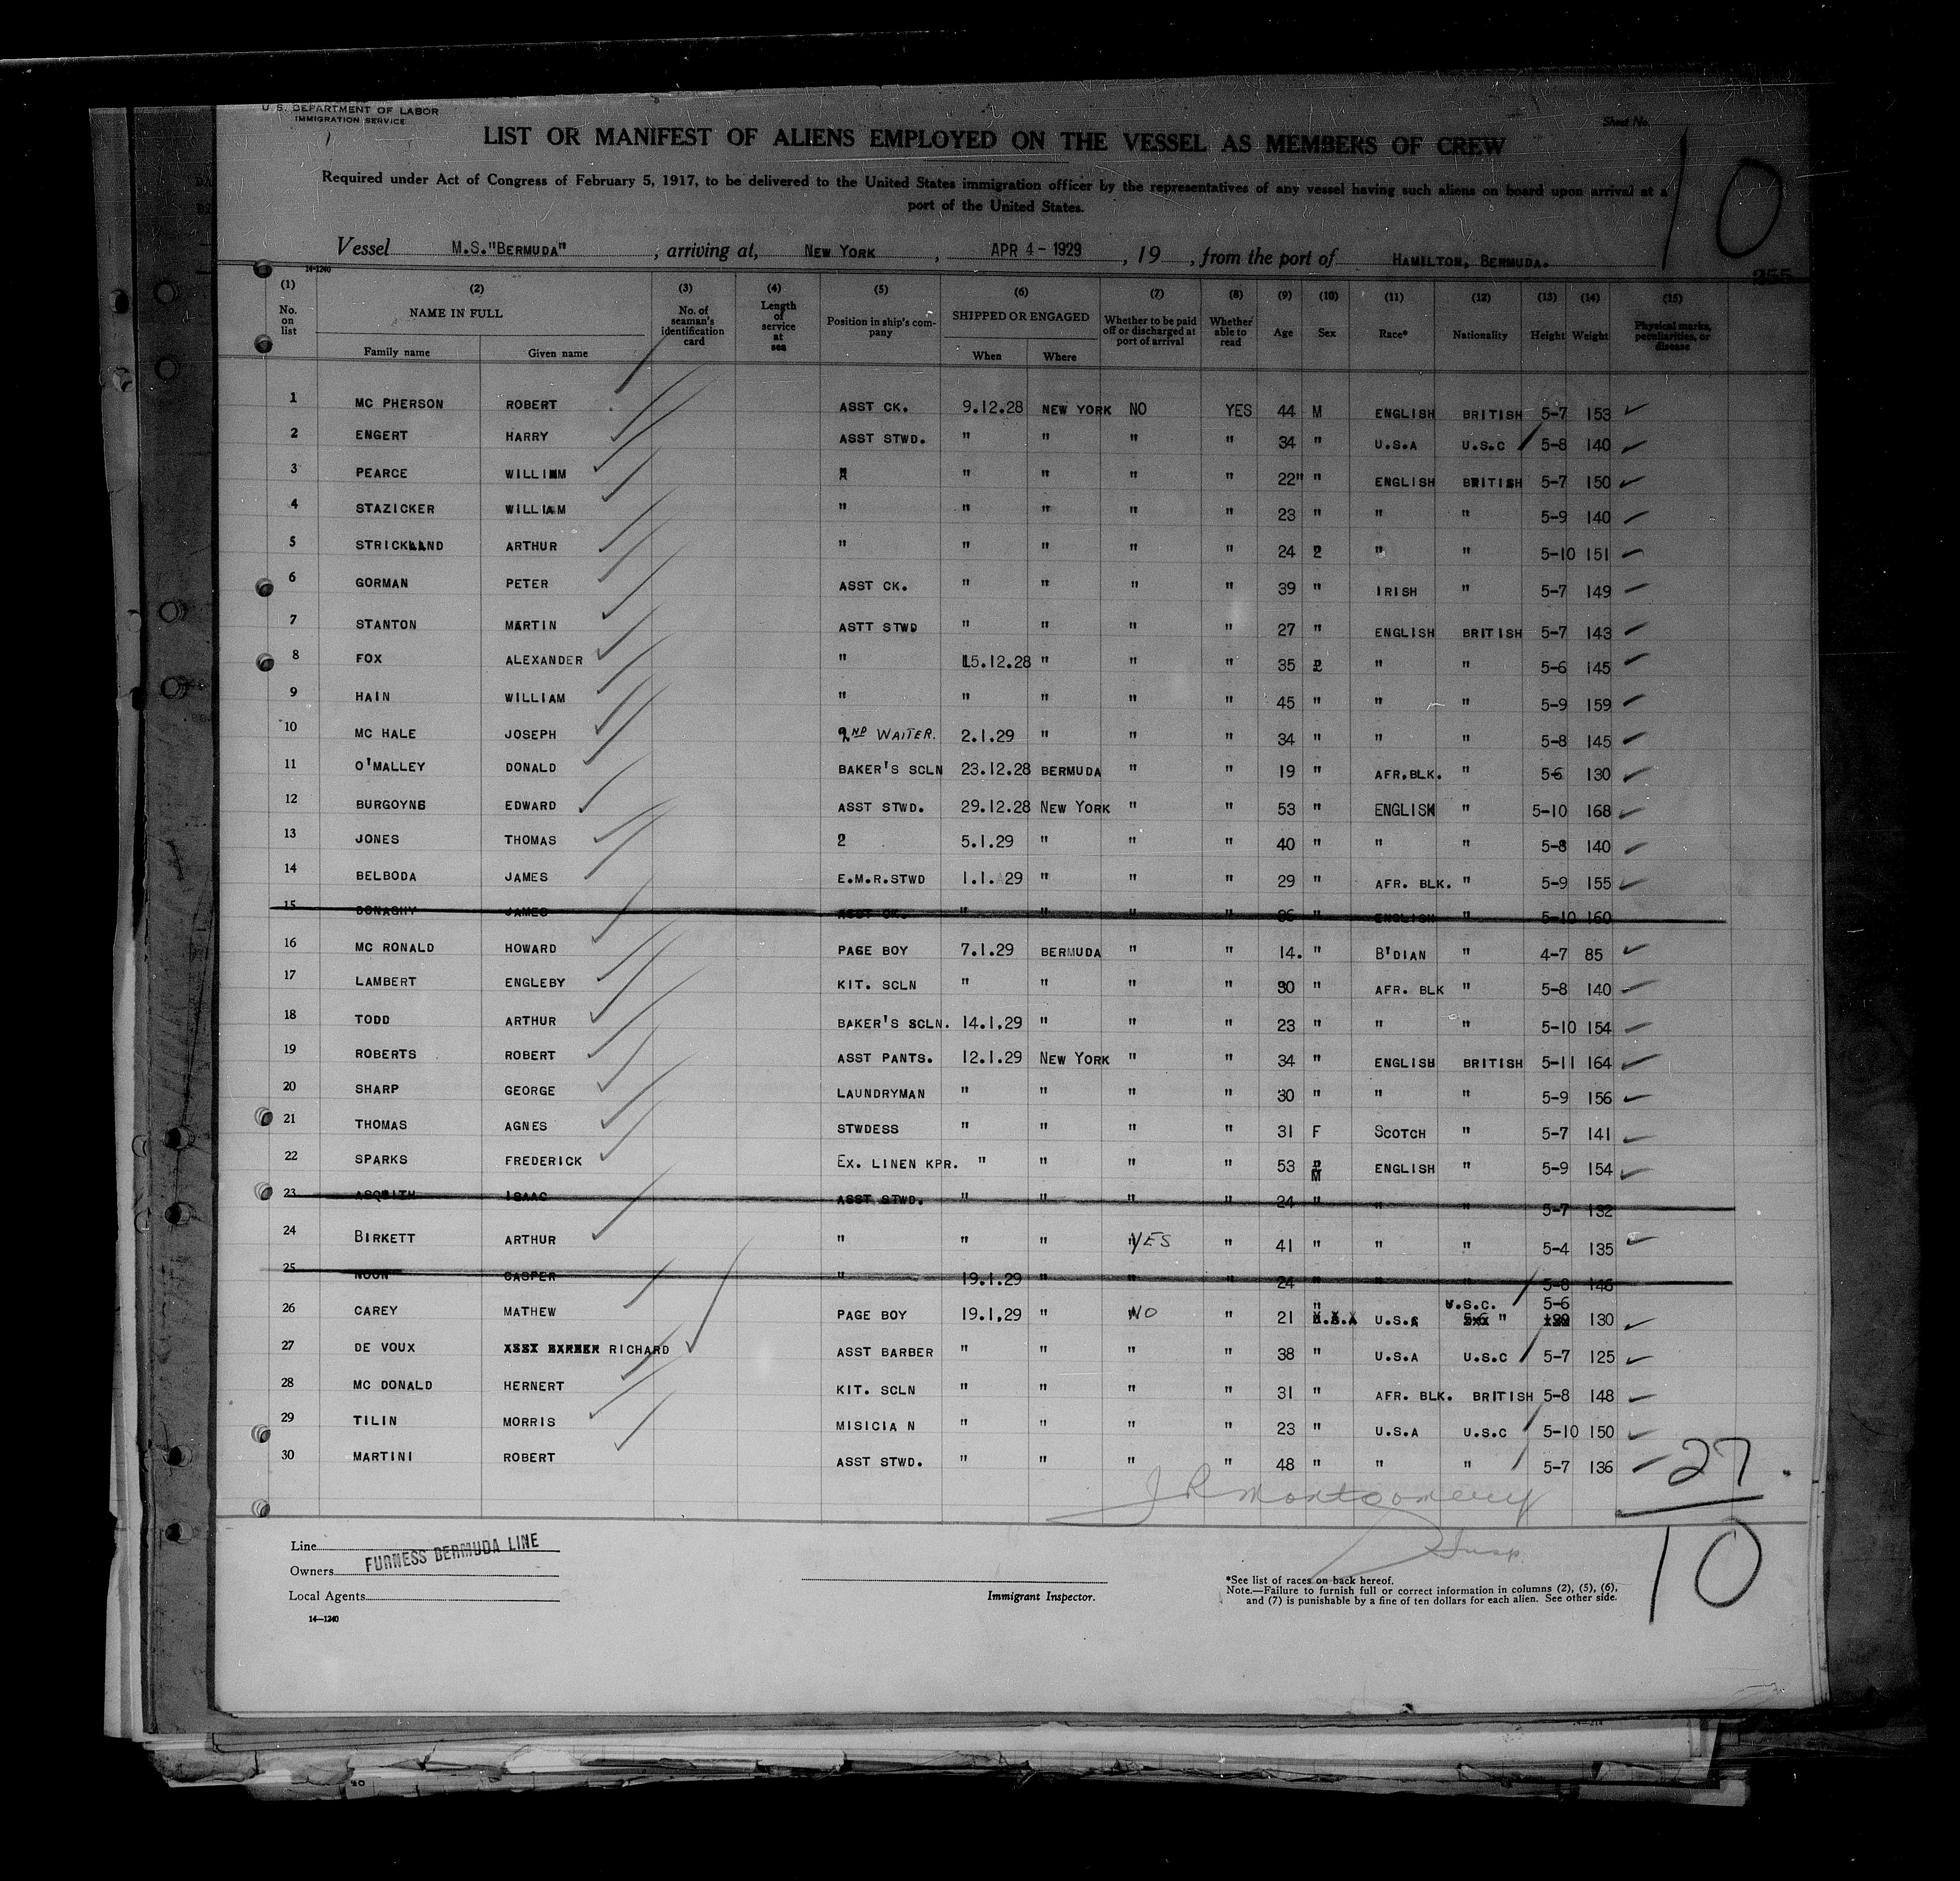 U. S. DEPARTMENT OF LABOR
IMMIGRATION SERVICE
Sheet No.
LIST OR MANIFEST OF ALIENS EMPLOYED ON THE VESSEL AS MEMBERS OF CREW
10
Required under Act of Congress of February 5, 1917, to be delivered to the United States immigration officer by the representatives of any vessel having such aliens on board upon arrival at a
port of the United States.
Vessel M.S."BERMUDA" , arriving at, NEW YORK , APR 4 - 1929 , 19 , from the port of HAMILTON, BERMUDA.
14-1240
255
(1) (2) (3) (4) (5) (6) (7) (8) (9) (10) (11) (12) (13) (14) (15)
No. on list NAME IN FULL Family name Given name No. of seaman's identification card Length of service at sea Position in ship's company SHIPPED OR ENGAGED When Where Whether to be paid off or discharged at port of arrival Whether able to read Age Sex Race* Nationality Height Weight Physical marks, peculiarities, or disease
1 MC PHERSON ROBERT ASST CK. 9.12.28 NEW YORK NO YES 44 M ENGLISH BRITISH 5-7 153
2 ENGERT HARRY ASST STWD. " " " " 34 " U.S.A U.S.C 5-8 140
3 PEARCE WILLIMM " " " " 22" " ENGLISH BRITISH 5-7 150
4 STAZICKER WILLIAM " " " " " 23 " " " 5-9 140
5 STRICKLAND ARTHUR " " " " " 24 2 " " 5-10 151
6 GORMAN PETER ASST CK. " " " " 39 " IRISH " 5-7 149
7 STANTON MARTIN ASTT STWD " " " " 27 " ENGLISH BRITISH 5-7 143
8 FOX ALEXANDER " 15.12.28 " " " 35 2 " " 5-6 145
9 HAIN WILLIAM " " " " " 45 " " " 5-9 159
10 MC HALE JOSEPH 2ND WAITER. 2.1.29 " " " 34 " " " 5-8 145
11 O'MALLEY DONALD BAKER'S SCLN 23.12.28 BERMUDA " " 19 " AFR.BLK. " 5-6 130
12 BURGOYNE EDWARD ASST STWD. 29.12.28 NEW YORK " " 53 " ENGLISH " 5-10 168
13 JONES THOMAS 2 5.1.29 " " " 40 " " " 5-8 140
14 BELBODA JAMES E.M.R.STWD 1.1.29 " " " 29 " AFR. BLK. " 5-9 155
15 DONAGHY JAMES ASST CK. " " " " 36 " ENGLISH " 5-10 160
16 MC RONALD HOWARD PAGE BOY 7.1.29 BERMUDA " " 14. " B'DIAN " 4-7 85
17 LAMBERT ENGLEBY KIT. SCLN " " " " 30 " AFR. BLK " 5-8 140
18 TODD ARTHUR BAKER'S SCLN. 14.1.29 " " " 23 " " " 5-10 154
19 ROBERTS ROBERT ASST PANTS. 12.1.29 NEW YORK " " 34 " ENGLISH BRITISH 5-11 164
20 SHARP GEORGE LAUNDRYMAN " " " " 30 " " " 5-9 156
21 THOMAS AGNES STWDESS " " " " 31 F SCOTCH " 5-7 141
22 SPARKS FREDERICK EX. LINEN KPR. " " " " 53 M ENGLISH " 5-9 154
23 ASQUITH ISAAC ASST STWD. " " " " 24 " " " 5-7 132
24 BIRKETT ARTHUR " " " YES " 41 " " " 5-4 135
25 NOON CASPER " 19.1.29 " " " 24 " " " 5-8 146
26 CAREY MATHEW PAGE BOY 19.1.29 " NO " 21 " U.S.A U.S.C. 5-6 130
27 DE VOUX ASST BARBER RICHARD ASST BARBER " " " " 38 " U.S.A U.S.C 5-7 125
28 MC DONALD HERNERT KIT. SCLN " " " " 31 " AFR. BLK. BRITISH 5-8 148
29 TILIN MORRIS MISICIA N " " " " 23 " U.S.A U.S.C 5-10 150
30 MARTINI ROBERT ASST STWD. " " " " 48 " " " 5-7 136
27
J R Montgomery
Insp.
10
Line
Owners FURNESS BERMUDA LINE
Local Agents
14-1240
Immigrant Inspector.
*See list of races on back hereof.
Note.—Failure to furnish full or correct information in columns (2), (5), (6),
and (7) is punishable by a fine of ten dollars for each alien. See other side.